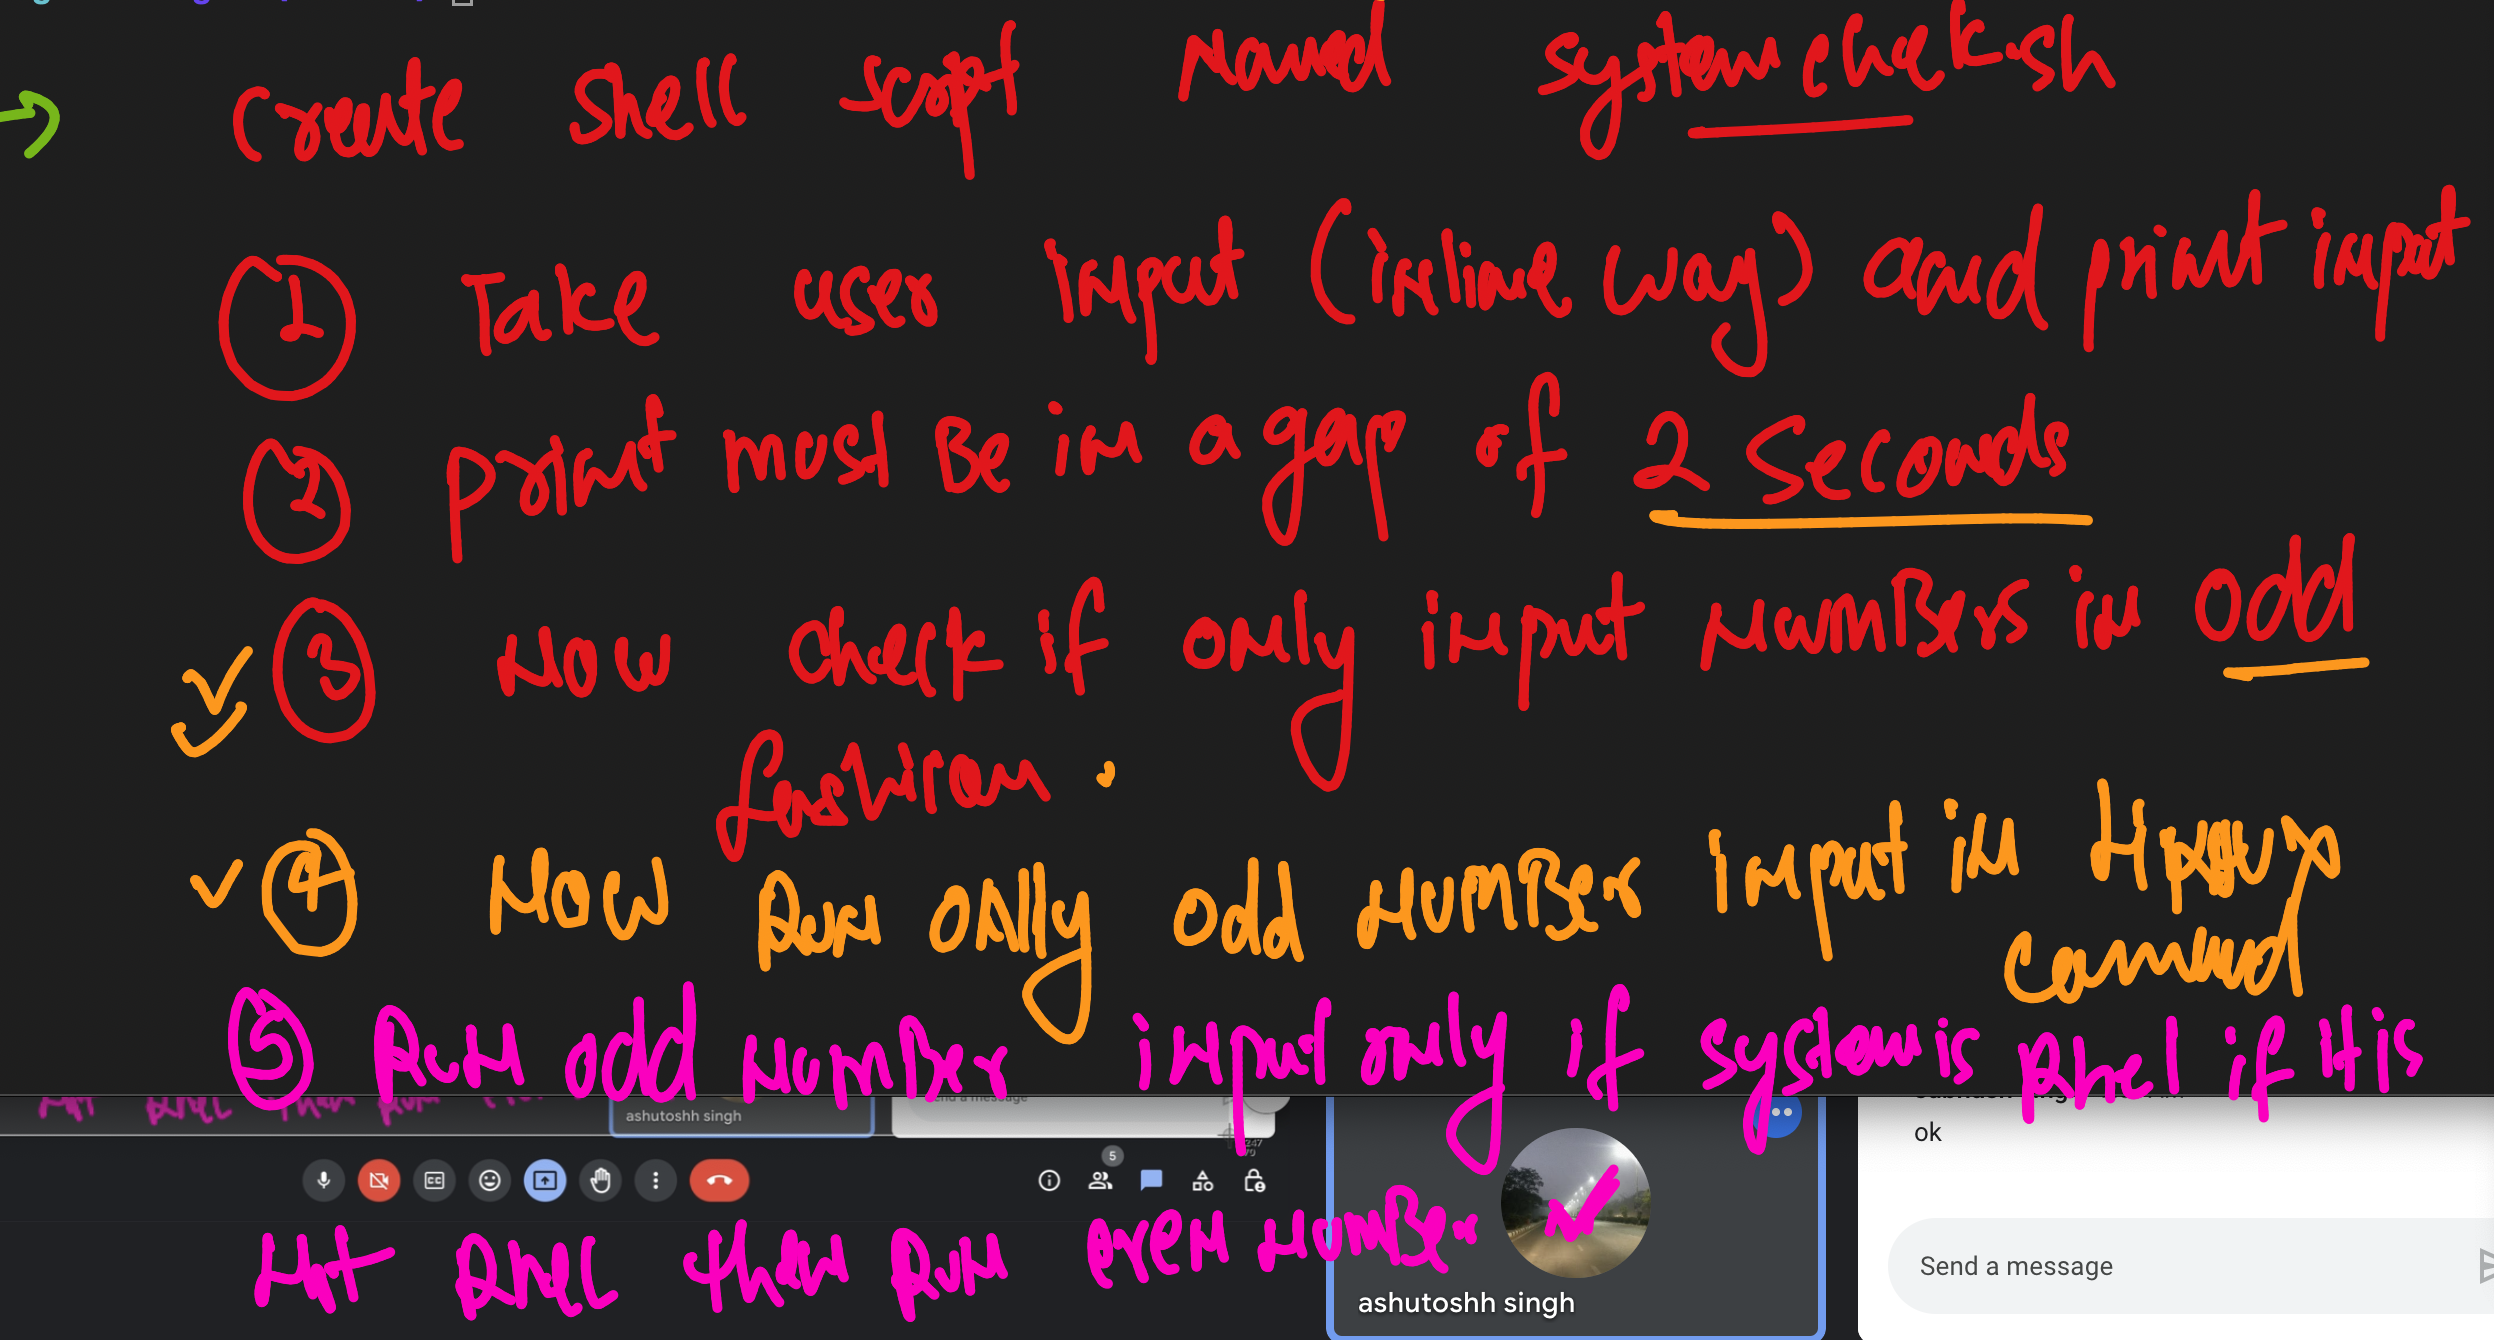 Create shell script named systemcheck.sh
1 Take user input (inline way) and print input
2 print must Be in a gap of 2 seconds
3 Now check if only input numBers in odd
fashion.
4 Now Run only odd NumBer input in Linux
command
5 Run odd NumBer input only if system is Rhel if it is
Not RHEL then RUN
ashutoshh singh
Send a message
5
ok
CC
Not RHEL then RUN even NumBer
Send a message
ashutoshh singh